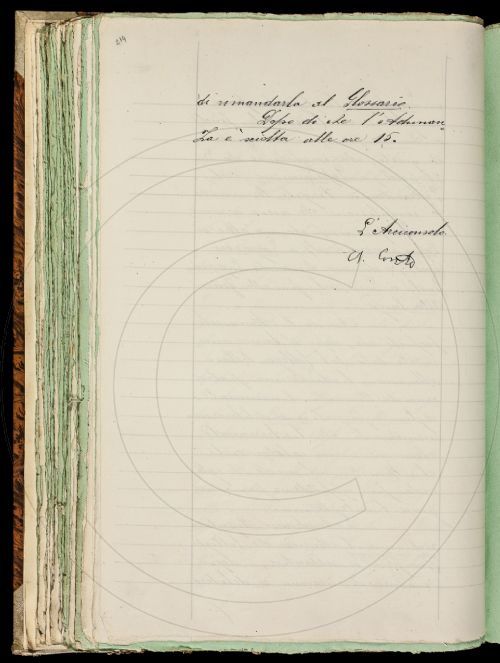 214
di rimandarla al Glossario.
Dopo di che l'Adunan
za è sciolta alle ore 15.
L'Arciconsolo
A. Conti